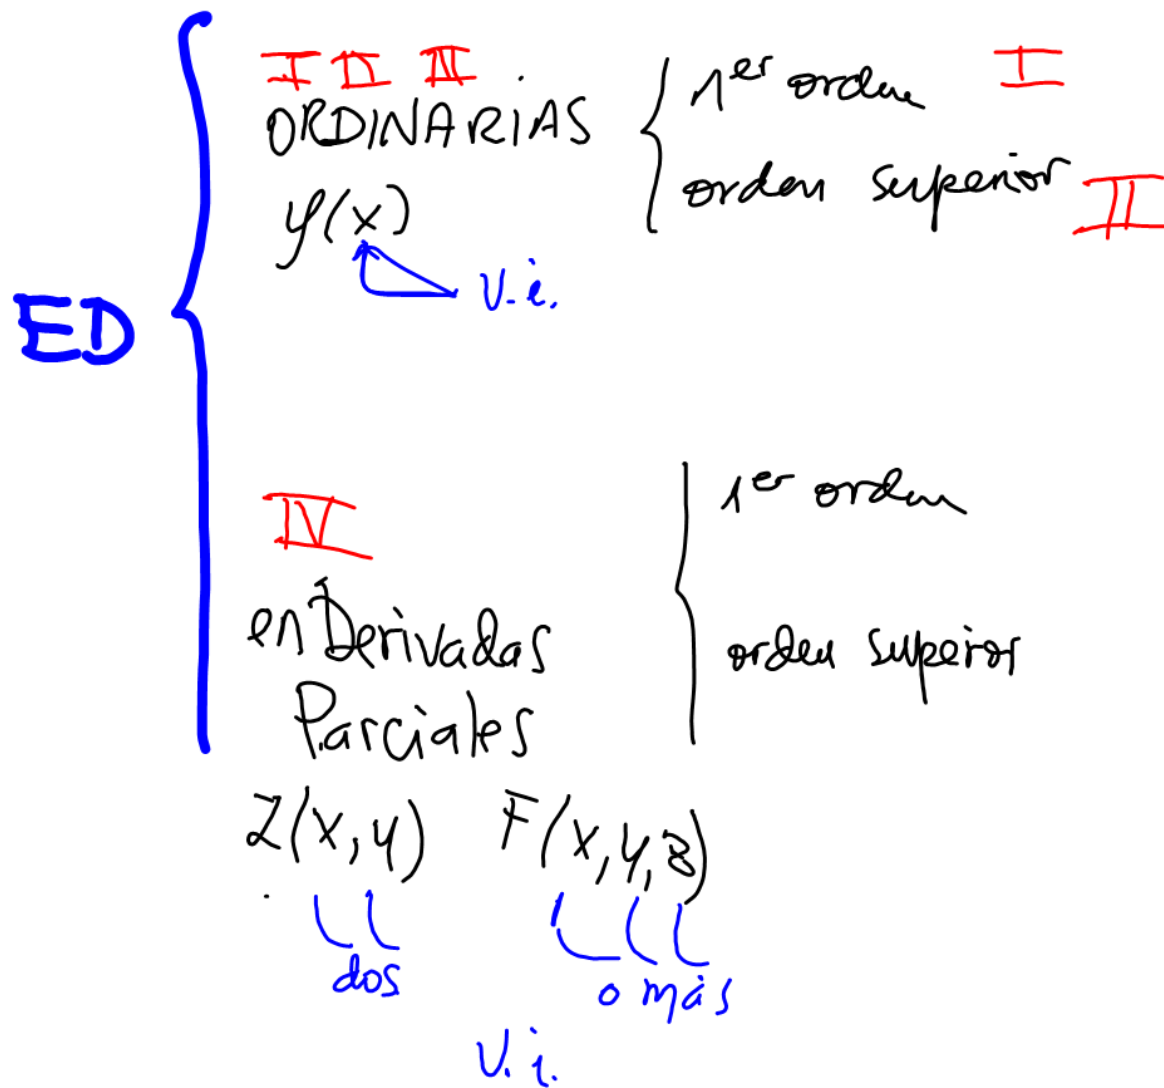 I II III
ORDINARIAS
y(x)
v.i.
1er orden I
orden superior II
ED
IV
en Derivadas
Parciales
1er orden
orden superior
Z(x,y) F(x,y,z)
dos o más
v.i.